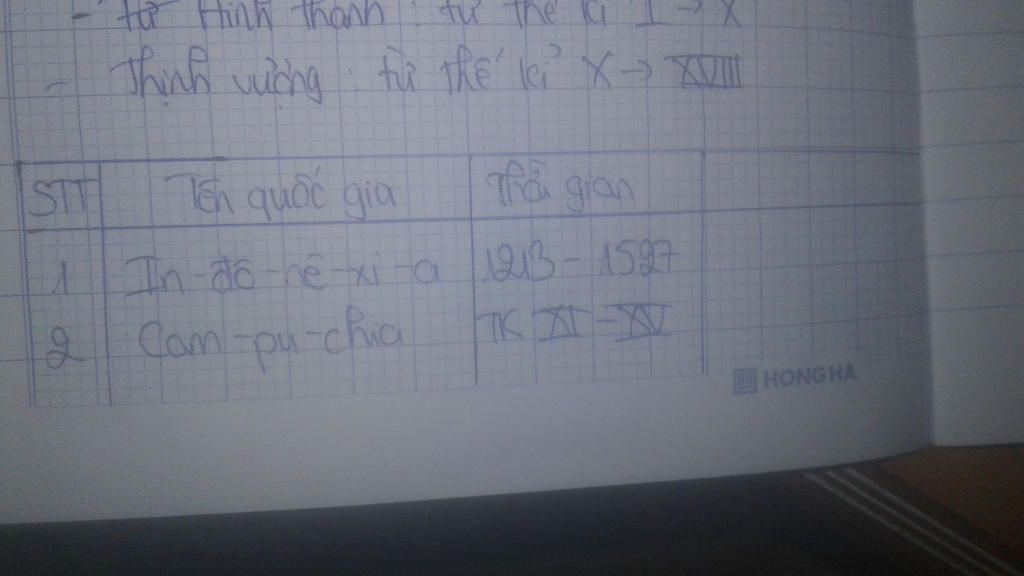 - Từ Hình thành : từ thế kỉ I → X
- Thịnh vượng : từ thế kỉ X → XVIII
STT Tên quốc gia Thời gian
1 In-đô-nê-xi-a 1213 - 1527
2 Cam-pu-chia TK XI - XV
HONG HA